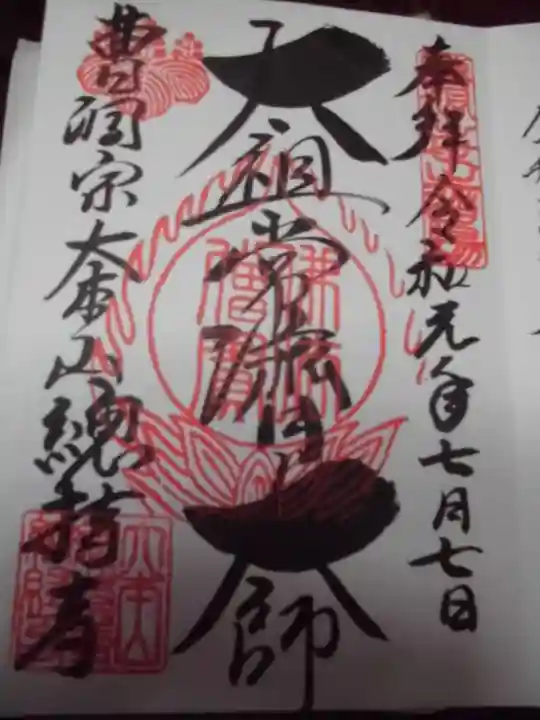 奉拝 令和元年七月七日
太祖常済大師
曹洞宗大本山總持寺